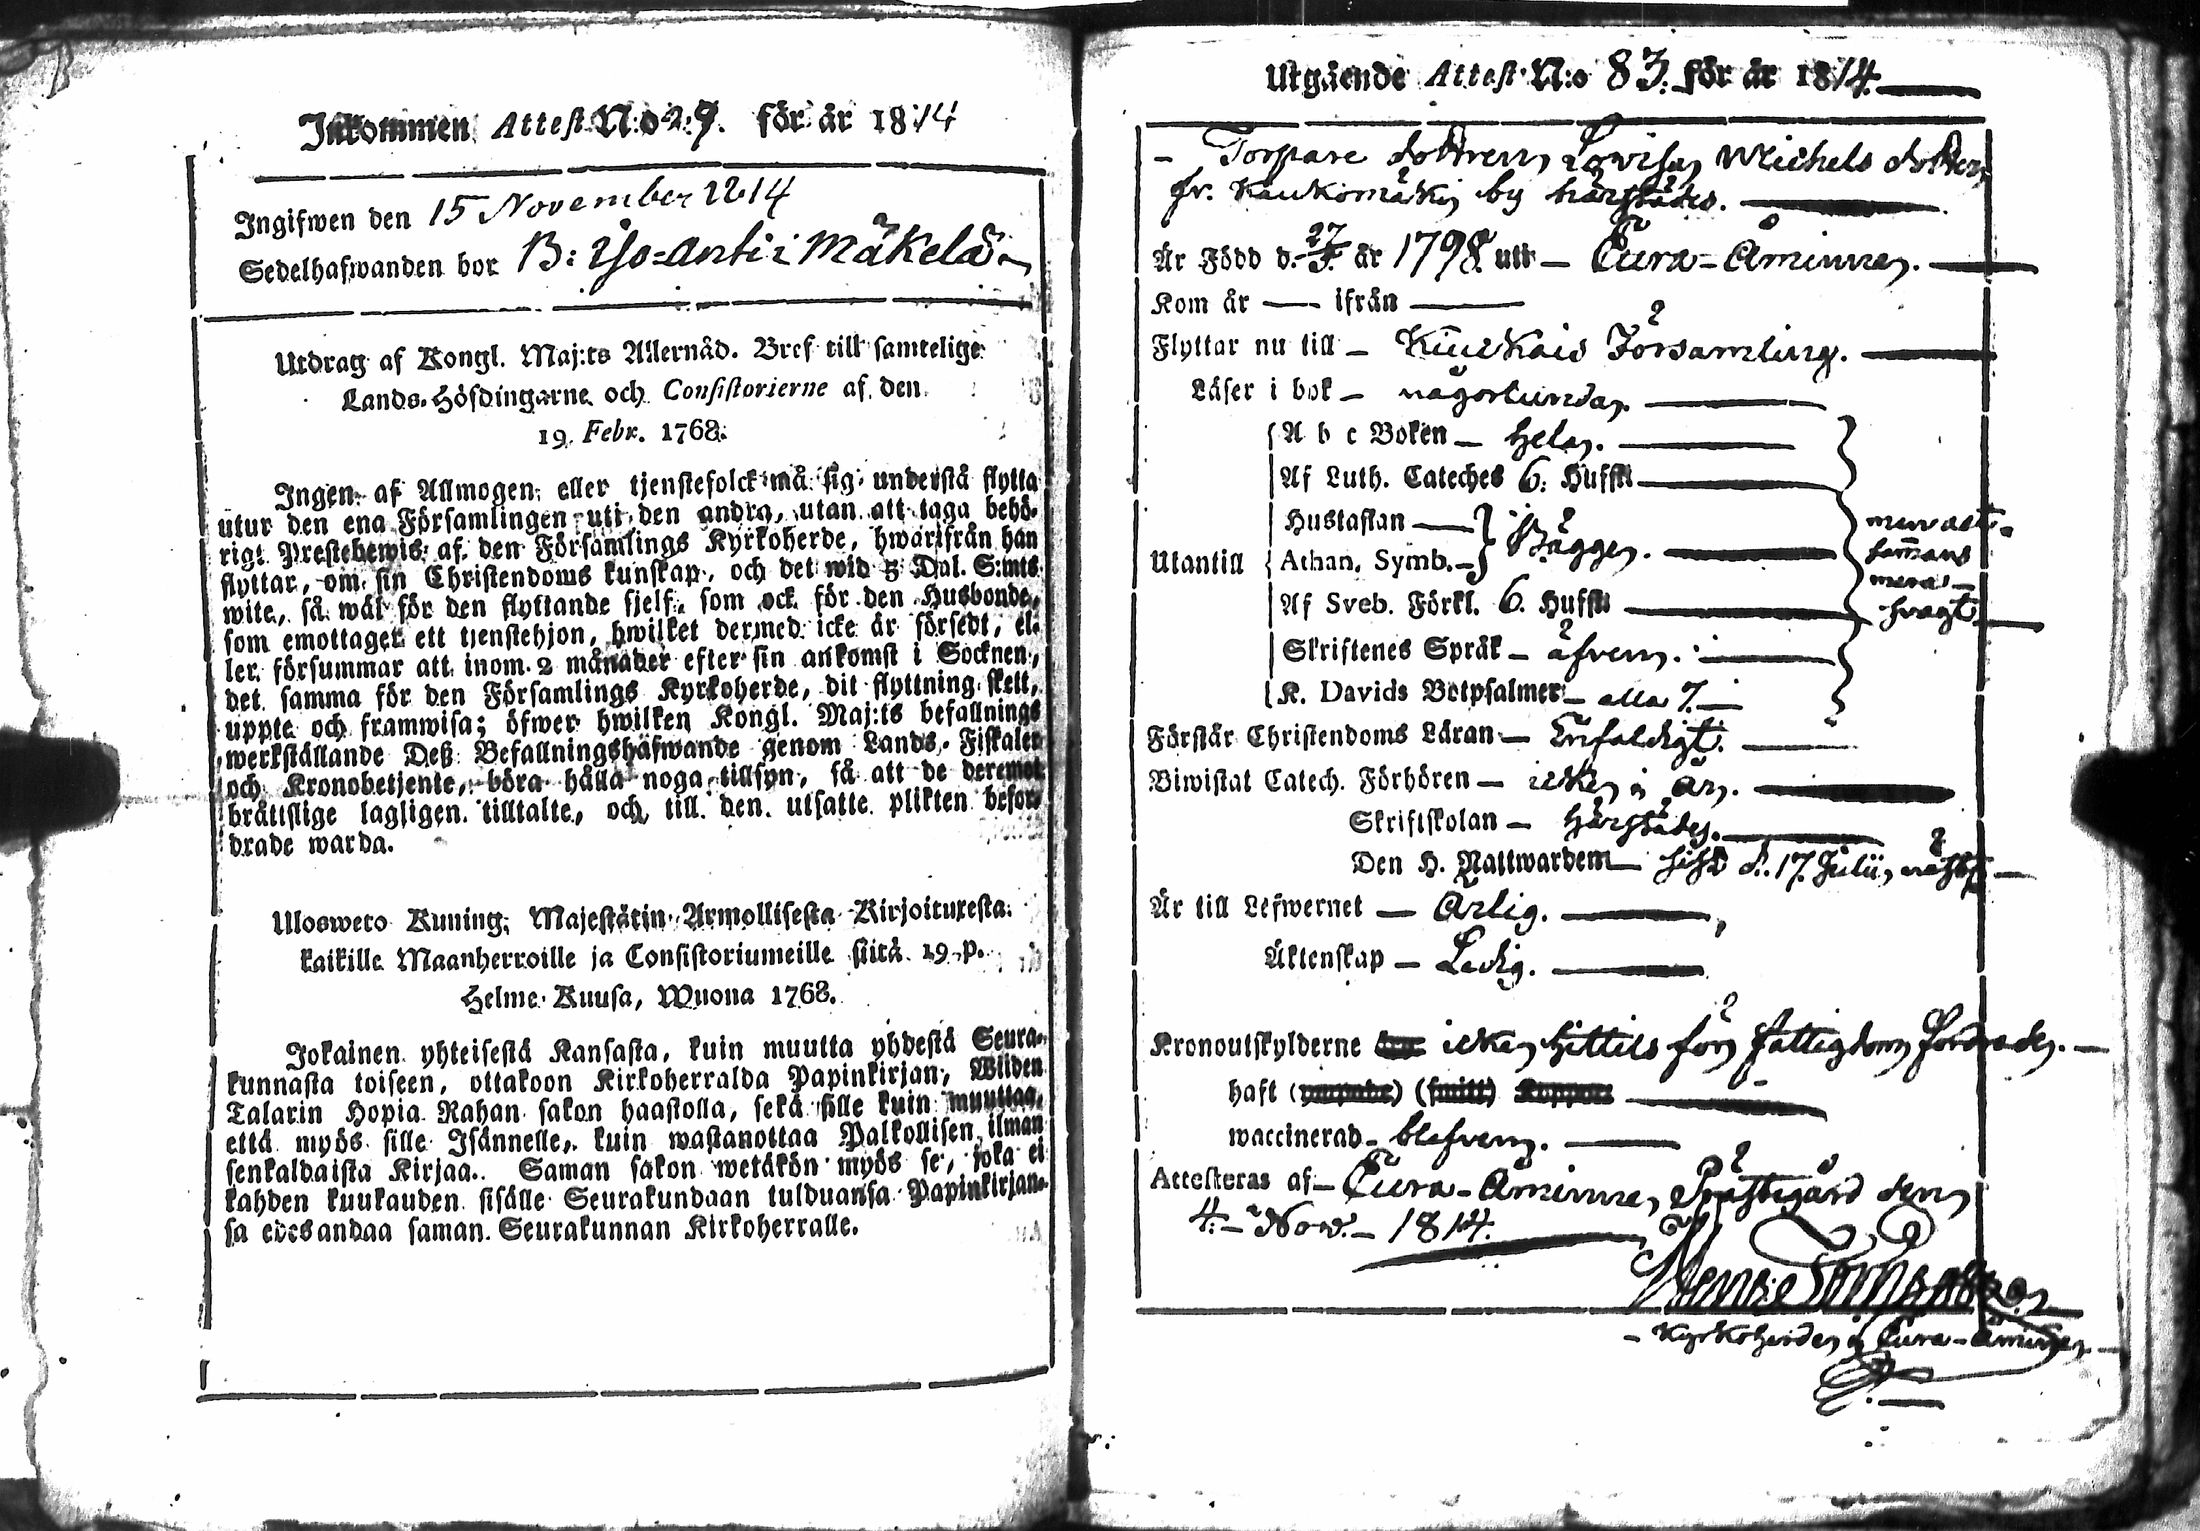 Inkommen Attest N:o 29. för år 1814
Ingifwen den 15 November 1814
Sedelhafwanden bor B: Iso-Antti i Mäkelä
Utdrag af Kongl. Maj:ts Allernåd. Bref till samtelige
Lands-Höfdingarne och Consistorierne af den
19 Febr. 1768.
Ingen af Allmogen eller tjenstefolck må sig understå flytta
utur den ena Församlingen uti den andra, utan att taga behö-
rigt Prestebewis af den Församlings Kyrkoherde, hwarifrån han
flyttar, om sin Christendoms kunskap, och det wid 5 Dal. S:mts
wite, så wäl för den flyttande sjelf, som ock för den Husbonde,
som emottager ett tjenstehjon, hwilket dermed icke är försedt, el-
ler försummar att inom 2 månader efter sin ankomst i Socknen,
det samma för den Församlings Kyrkoherde, dit flyttning skett,
uppte och framwisa; öfwer hwilken Kongl. Maj:ts befallnings
werkställande Deß Befallningshäfwande genom Lands-Fiskaler
och Kronobetjente, böra hålla noga tillsyn, så att de deremot
bråttslige lagligen tilltalte, och till den utsatte plikten befor-
drade warda.
Uloswero Kuning. Majestätin Armollisesta Kirjoituxesta
kaikille Maanherroille ja Consistoriumeille siitä 19 p.
Helme-Kuusa, Wuona 1768.
Jokainen yhteisestä Kansasta, kuin muutta yhdestä Seura-
kunnasta toiseen, ottakoon Kirkoherralda Papinkirjan, Wiiden
Talarin Hopia Rahan sakon haastolla, sekä sille kuin muuttaa,
että myös sille Isännelle, kuin wastanottaa Palkollisen ilman
senkaldaista Kirjaa. Saman sakon wetäkön myös se, joka ei
kahden kuukauden sisälle Seurakundaan tulduansa Papinkirjan-
sa edesandaa saman Seurakunnan Kirkoherralle.
Utgående Attest N:o 83. för år 1814.
- Torpare dottren, Lovisa, Michels dotter,
fr. Kaukomäki by härstädes.
Är Född d. 27/3. år 1798. uti - Eura-Åminne.
Kom år — ifrån —
Flyttar nu till - Kiukais Församling.
Läser i bok - någorlunda.
A b c Boken - hela.
Af Luth. Cateches 6. Hufst.
Hustaflan —
Bägge.
Utantill Athan. Symb. -
Af Sveb. Förkl. 6. Hufst.
Skriftenes Språk - äfven.
K. Davids Botpsalmer - alla 7.
svagt.
Förstår Christendoms Läran - Enfaldigt.
Biwistat Catech. Förhören - icke i år.
Skriftskolan - härstädes.
Den H. Nattwarden - sist d. 17. Julii, näst
Är till Lefwernet - Ärlig.
Äktenskap - Ledig.
Kronoutskylderne icke hittils för fattigdom fordrade.
haft
waccinerad - blefven.
Attesteras af - Eura-Åminne, Prästegård den
4. Nov. - 1814.
- Kyrkoherde i Eura-Åminne.